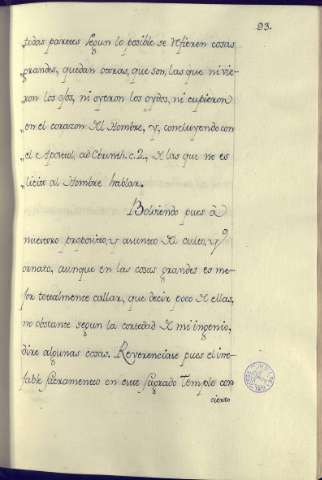 93.
todas partes segun lo posible se refieren cosas
grandes, quedan otras, que son, las que ni vie-
ron los ojos, ni oyeron los oydos, ni cupieron
en el corazon del Hombre, y, concluyendo con
el Apostol, ad Corinth. c. 2., de las que no es
licito al Hombre hablar.
Bolviendo pues â
nuestro proposito, y asunto del culto, y
ornato, aunque en las cosas grandes es me-
jor totalmente callar, que decir poco de ellas,
no obstante segun la cortedad de mi ingenio,
dire algunas cosas. Reverenciase pues el ine-
fable sacramento en este sagrado Templo con
cierto